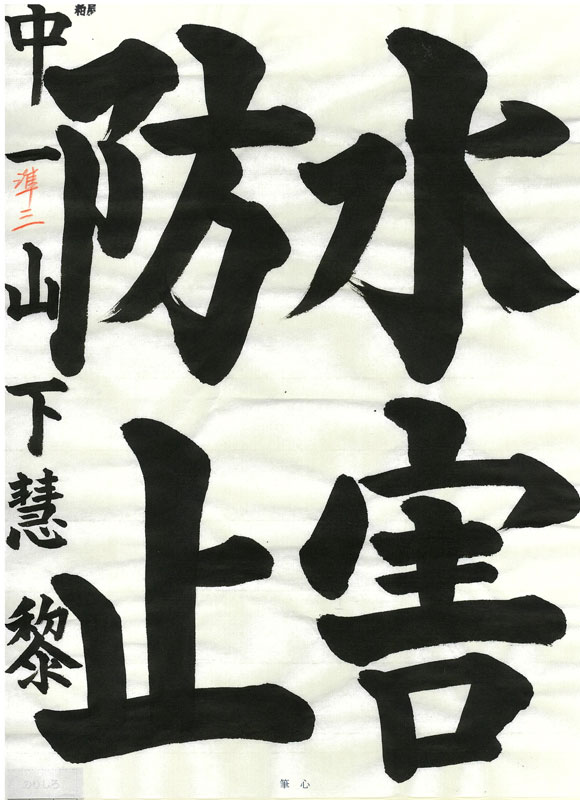 水害
防止
中一山下慧黎
準三
粕屋
筆心
のりしろ